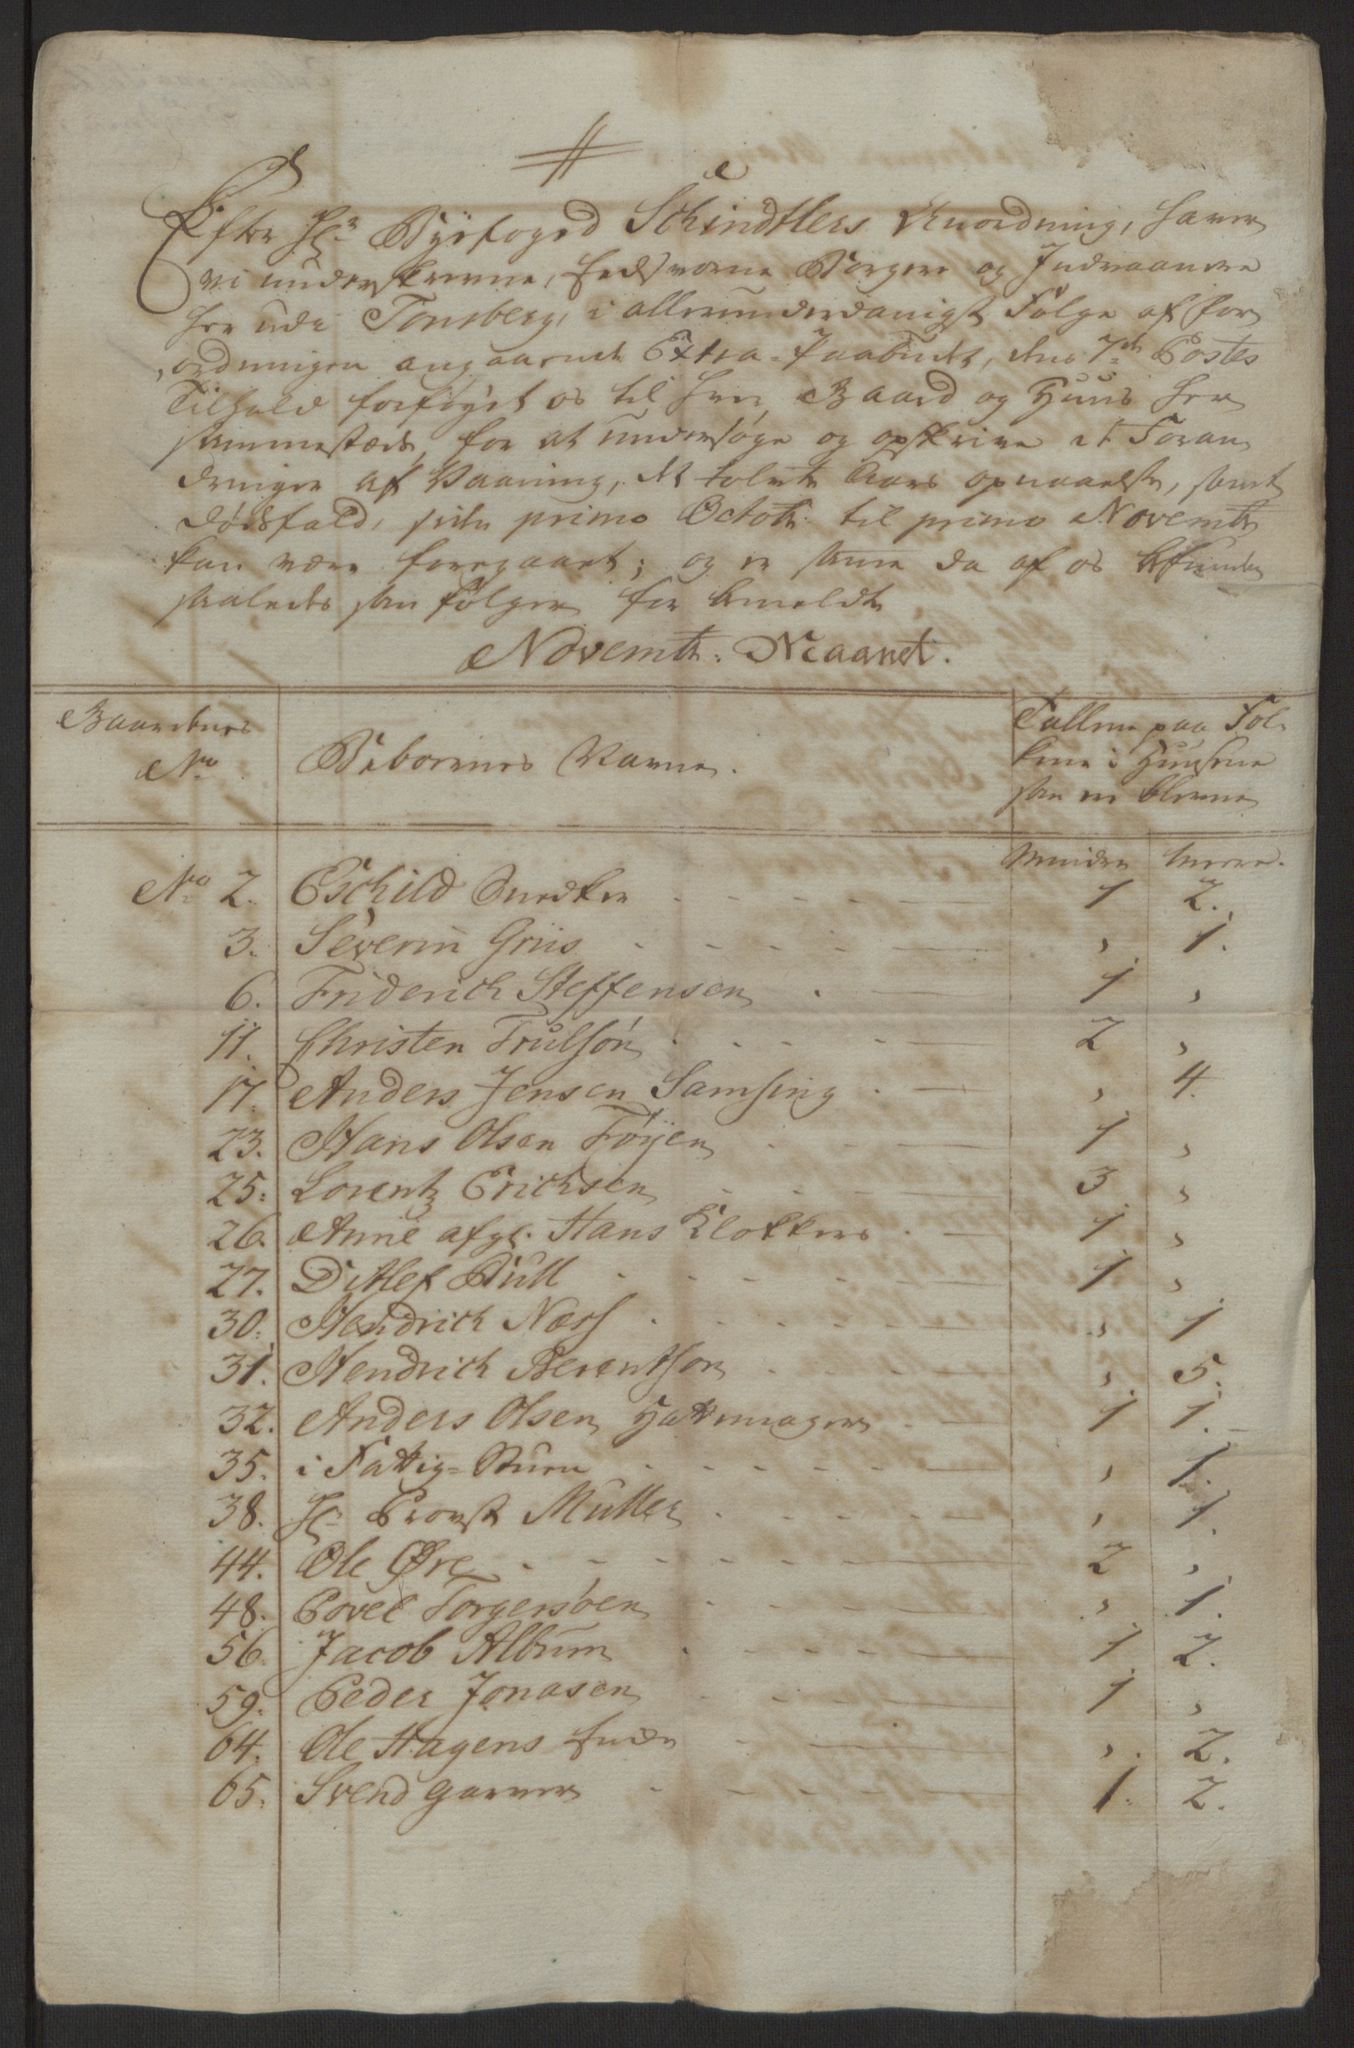 Efter Hr Byefoged Schindtlers Anordning, haver
vi underskrevne, Eedsvorne Borgere og Indvaanere
her udi Tonsberg, i allerunderdanigst Følge af for
ordningen angaaende Extra-Paabudet, dens 7de Postes
Tilhold forføyet os til hver Gaard og Huus her
sammesteds, for at undersøge og opskrive et Foran
dringer af Vaaning, et tolvte Aars opnaaelse, samt
dødsfald, siden primo Octobr. til primo Novembr
kan være foregaaet; og er samme da af os befunden
saaledes som følger for bemeldte
Novembr. Maaned.
Gaardenes No
Beboernes Navne.
Tallene paa Fol-
kene i Huusene
som ere blevne
Mindre meere.
No 2. Eschild Snedker 1 2.
3. Severin Griis , 1.
6. Friderich Steffensen 1 ,
11. Christen Trulsøn 2 ,
17. Anders Jensen Samsing , 4.
23. Hans Olsen Føyen 1 ,
25. Lorentz Erichsen 3 ,
26. Anne afgl. Hans Klokkers 1 ,
27. Ditlef Bull 1 ,
30. Hendrich Næss , 1
31. Hendrich Berentsøn , 5.
32. Anders Olsen Hattemager 1 1.
35. i Fattig-Stuen , 1.
38. Hr Provst Muller , 1.
44. Ole Øre 2 ,
48. Povel Torgersøen , 1.
56. Jacob Album 1 2.
59. Peder Jonasen 1 ,
64. Ole Hagens Enke , 2.
65. Svend Garver 1. 2.